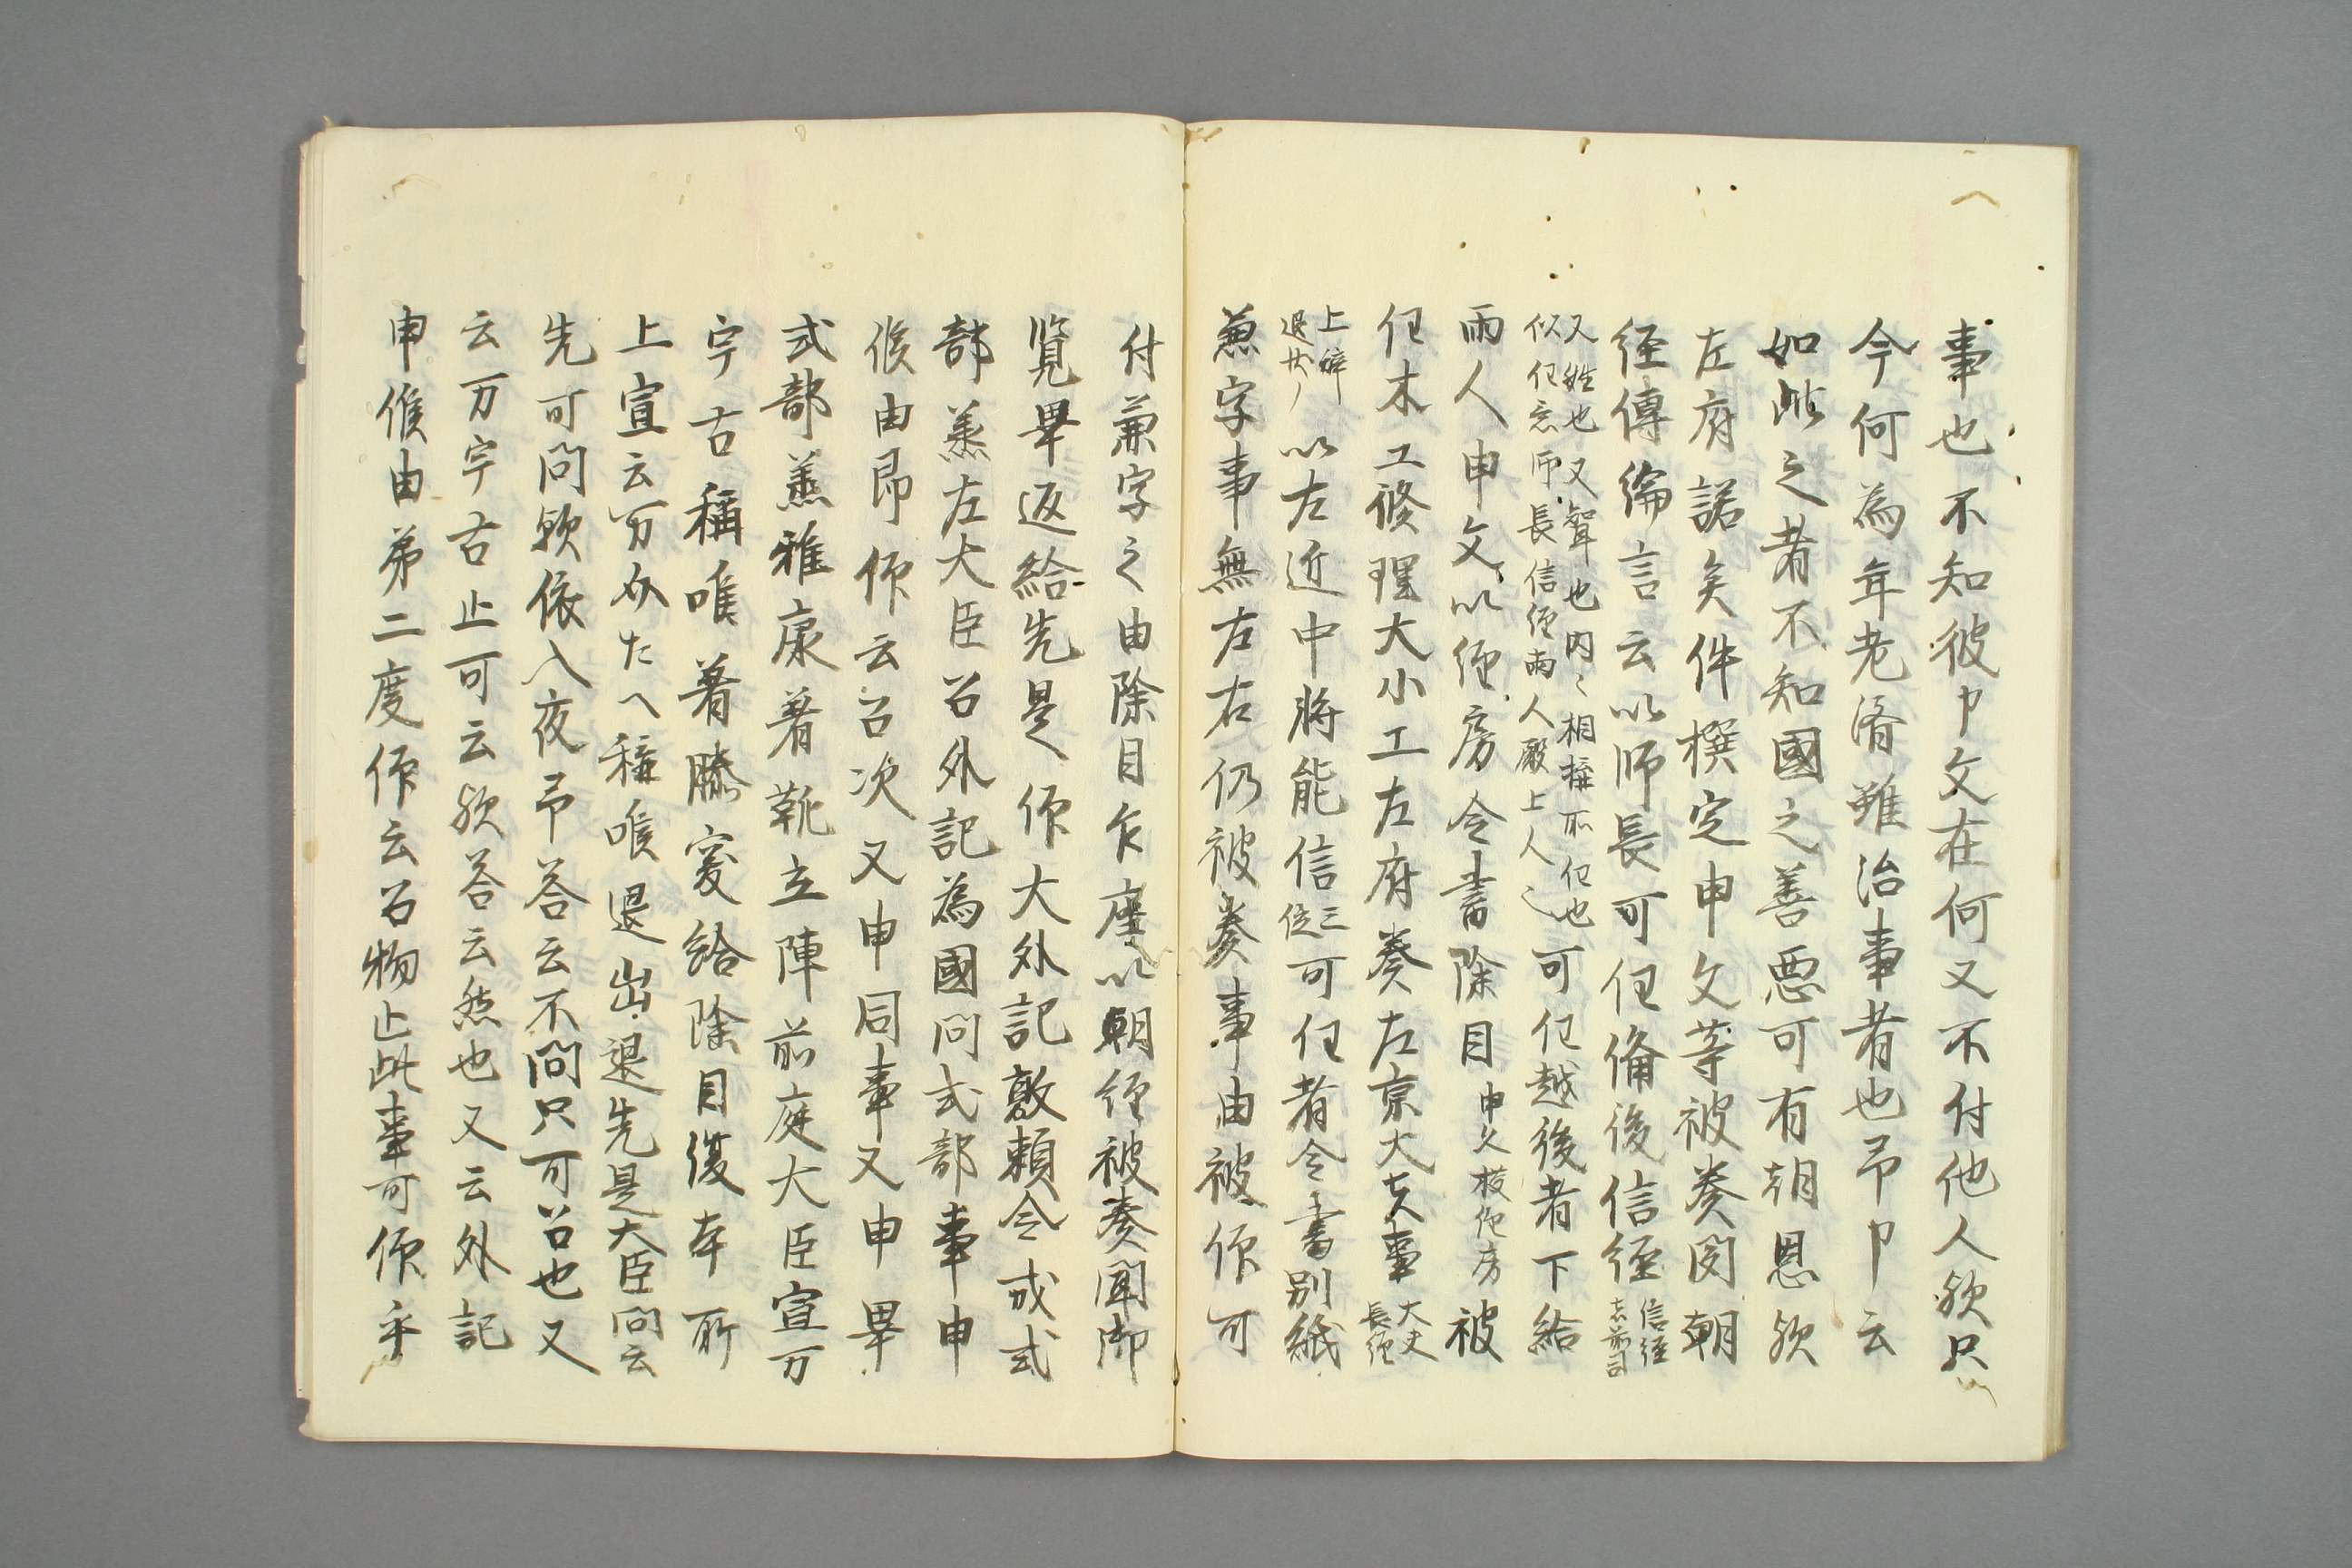 事也不知彼卩文在何又不付他人欤只
今何為年老済雖治事者也予卩云
如此之者不知國之善悪可有朝恩欤
左府諾矣件撰定申文等被奏関朝
経傳綸言云以師長可任備後信経
信経
去前司
又姓也又聟也内々相挙所任也
似任意師長信経両人殿上人
可任越後者下給
両人申文以経房令書除目
申文授経房
被
任木工修理大小工左府奏左京大夫事
大夫
長経
上辞
退廿
以左近中将能信
三
位
可任者令書別紙
兼字事無左右仍被奏事由被仰可
付兼字之由除目乍座以朝経被奏聞御
覧畢返給先是仰大外記敦頼令戒式
部丞左大臣召外記為國問式部事申
候由即仰云召次又申同事又申畢
式部丞雅康著靴立陣前庭大臣宣万
宇古稱唯著膝突給除目復本所
上宣云万介たへ稱唯退出退先是大臣問云
先可問欤依入夜予答云不問只可召也又
云万宇古止可云欤答云然也又云外記
申候由弟二度仰云召物止此事可仰乎